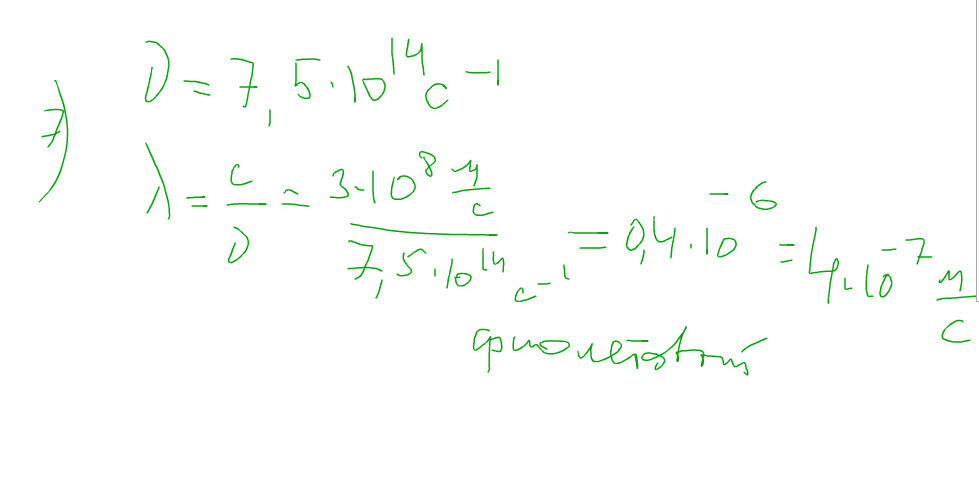 7)
D = 7,5·10^14 c^-1
λ = c/D = (3·10^8 м/с)/(7,5·10^14 c^-1) = 0,4·10^-6 = 4·10^-7 м/с
фиолетовый